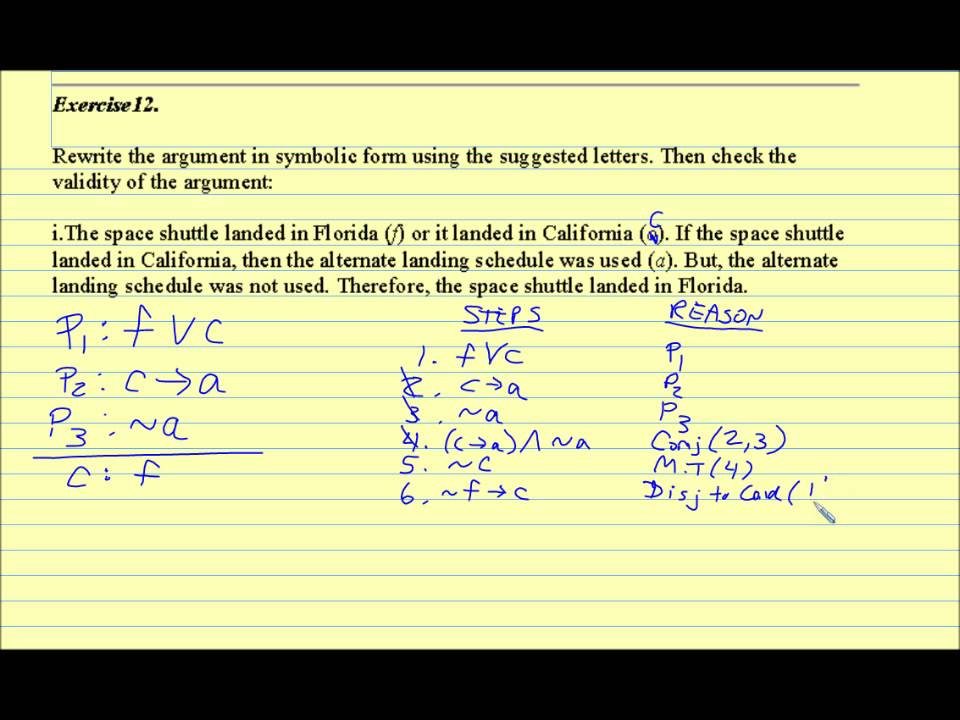 Exercise12.
Rewrite the argument in symbolic form using the suggested letters. Then check the
validity of the argument:
c
i.The space shuttle landed in Florida (f) or it landed in California (c). If the space shuttle
landed in California, then the alternate landing schedule was used (a). But, the alternate
landing schedule was not used. Therefore, the space shuttle landed in Florida.
P1 : f V c
P2 : c → a
P3 : ~a
C : f
STEPS REASON
1. f V c P1
2. c → a P2
3. ~a P3
4. (c → a) Λ ~a Conj (2,3)
5. ~c M.T (4)
6. ~f → c Disj to Cond (1